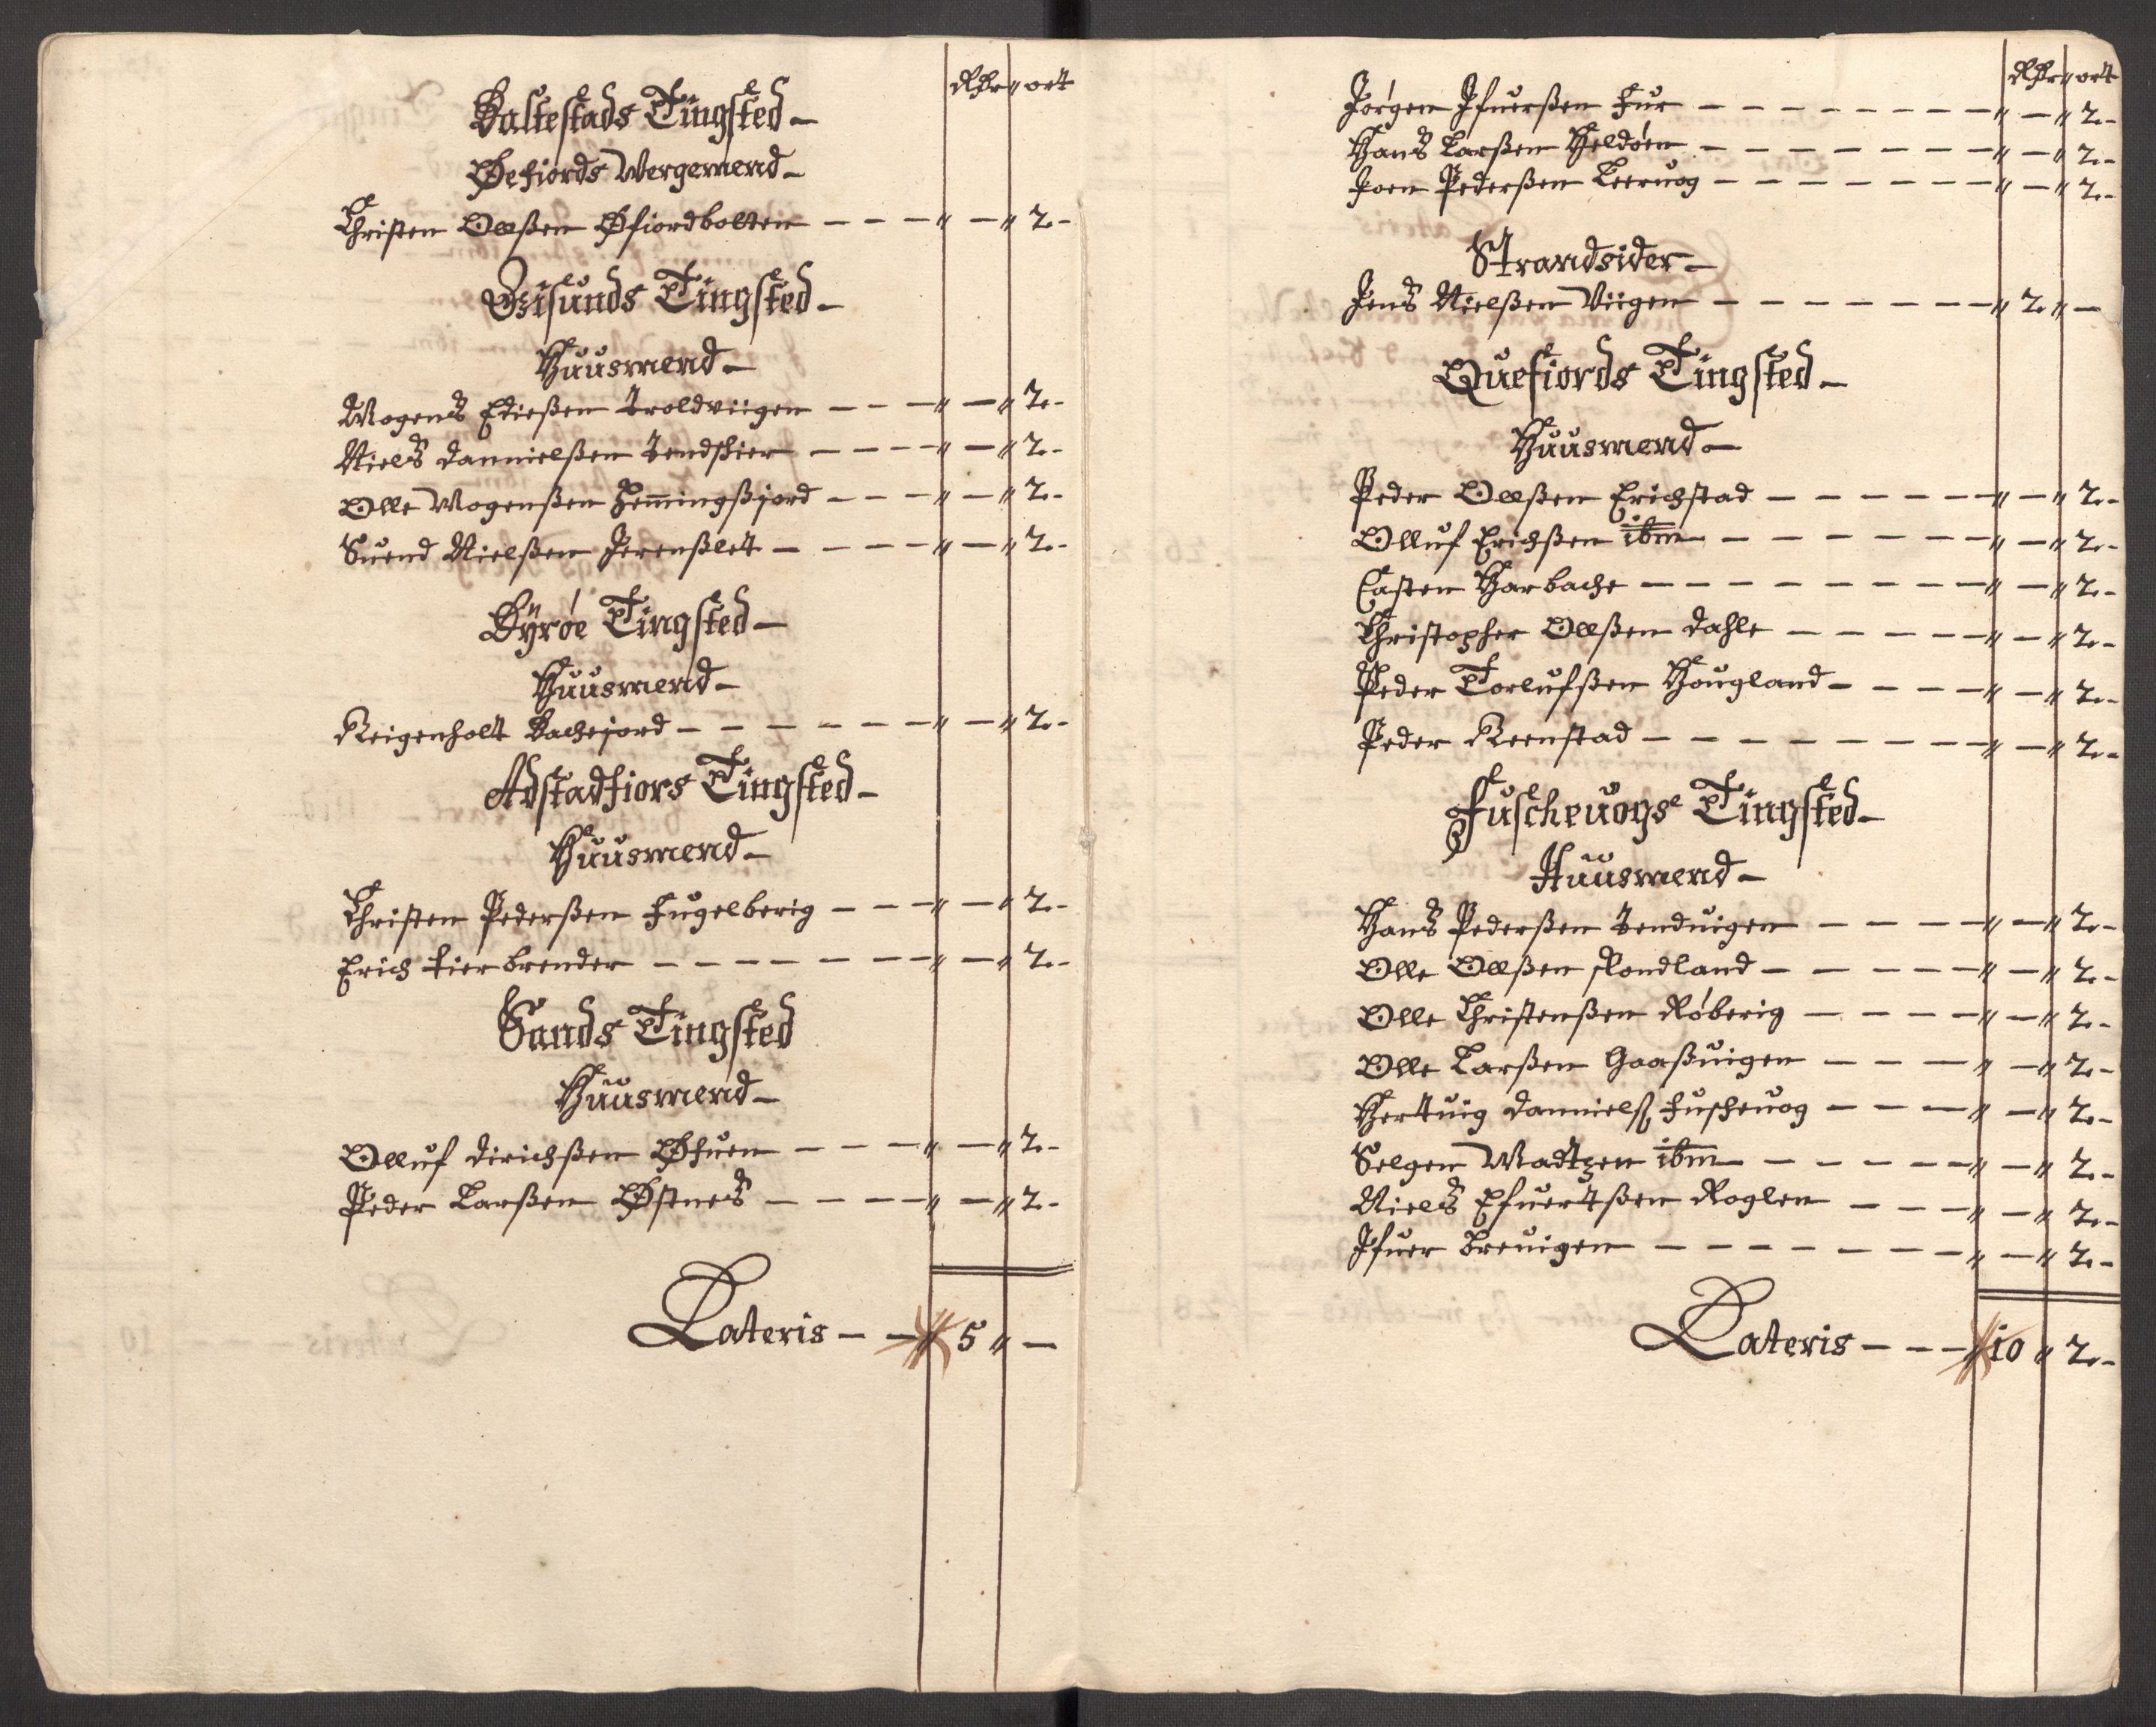 Rdr ort
Baltestads Tingsted
Øefiords Wergemend
Christen Ollßen Øfiordbotten - - - " - " 2 -
Gisunds Tingsted
Huusmend
Mogens Edisßen Troldviigen - - - " - " 2 -
Niels Dannielßen Tendschier - - - " - " 2 -
Olle Mogenßen Hemmingßjord - - - " - " 2 -
Suend Nielßen Jerenßlet - - - - " - " 2 -
Dÿrøe Tingsted
Huusmend
Reigenholt Bachejord - - - - - - " - " 2 -
Astadfiors Tingsted
Huusmend
Christen Pederßen Fugelberig - - - " - " 2 -
Erich tierbrender - - - - - - - " - " 2 -
Sands Tingsted
Huusmend
Olluf Dirichßen Øfuen - - - - " - " 2 -
Peder Larßen Østnes - - - - " - " 2 -
Lateris - - " 5 " -
Rdr ort
Jørgen Ifuerßen Fur - - - - - - - - " - " 2 -
Hans Larßen Heldøen - - - - - - - " - " 2 -
Joen Pederßen Leeruog - - - - - - - " - " 2 -
Strandsider
Jens Nielßen Viigen - - - - - - - " 2 " -
Quefiords Tingsted
Huusmend
Peder Ollßen Erichstad - - - - - " - " 2 -
Olluf Erichßen ibm - - - - - - " - " 2 -
Casten Harbache - - - - - - - - " - " 2 -
Christopher Ollßen Dahle - - - - - " - " 2 -
Peder Torlufßen Hougland - - - - " - " 2 -
Peder Reenstad - - - - - - - - " - " 2 -
Fuscheuogs Tingsted
Huusmend
Hans Pederßen Tenduigen - - - - " - " 2 -
Olle Ollßen Rondland - - - - - " - " 2 -
Olle Christenßen Røberig - - - - " - " 2 -
Olle Larßen Gaaßuigen - - - - " - " 2 -
Hertuig Danniels Fuscheuog - - - " - " 2 -
Selgen Madtzen ibm - - - - - " - " 2 -
Niels Efuertßen Roglen - - - " - " 2 -
Ifuer Breuigen - - - - - - - " - " 2 -
Lateris - - - " 10 " 2 -